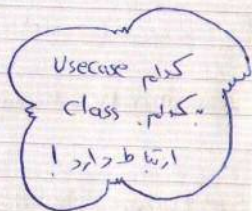 کدام Usecase
به کدام class
ارتباط دارد!